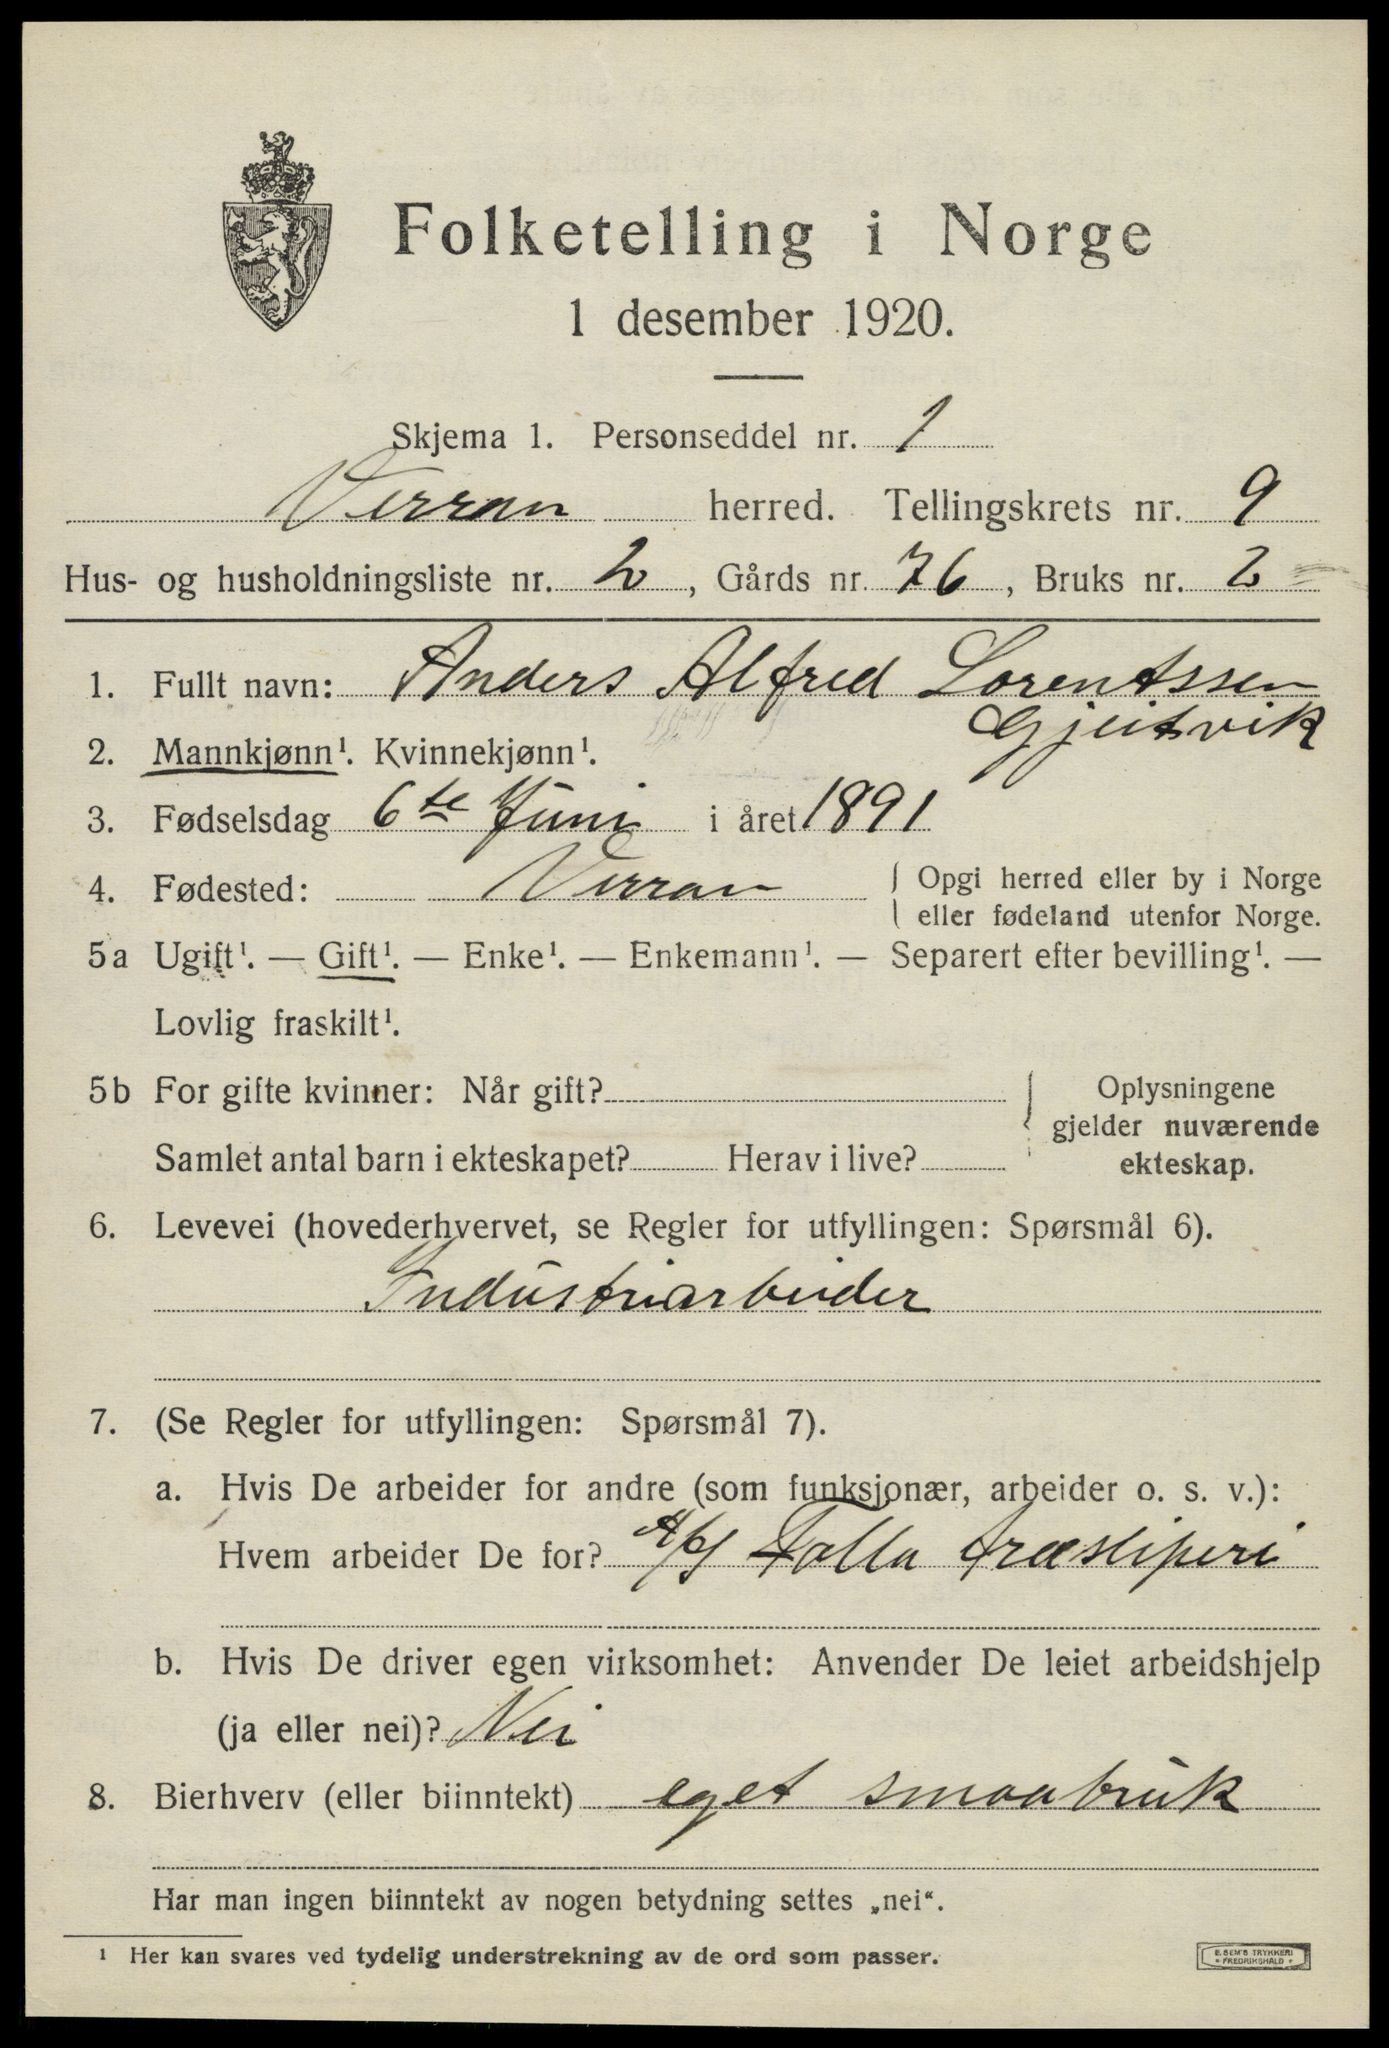 Folketelling i Norge
1 desember 1920.
Skjema 1. Personseddel nr. 1
Verran herred. Tellingskrets nr. 9
Hus- og husholdningsliste nr. 2, Gårds nr. 76, Bruks nr. 2
1. Fullt navn: Anders Alfred Lorentssen
Gjeitvik
2. Mannkjønn¹. Kvinnekjønn¹.
3. Fødselsdag 6te Juni i året 1891
4. Fødested: Verran { Opgi herred eller by i Norge
eller fødeland utenfor Norge.
5a Ugift¹. — Gift¹. — Enke¹. — Enkemann¹. — Separert efter bevilling¹. —
Lovlig fraskilt¹.
5b For gifte kvinner: Når gift? { Oplysningene
gjelder nuværende
Samlet antal barn i ekteskapet? Herav i live? ekteskap.
6. Levevei (hovederhvervet, se Regler for utfyllingen: Spørsmål 6).
Industriarbeider
7. (Se Regler for utfyllingen: Spørsmål 7).
a. Hvis De arbeider for andre (som funksjonær, arbeider o. s. v.):
Hvem arbeider De for? A/S Folla træsliperi
b. Hvis De driver egen virksomhet: Anvender De leiet arbeidshjelp
(ja eller nei)? Nei
8. Bierhverv (eller biinntekt) eget smaabruk
Har man ingen biinntekt av nogen betydning settes „nei“.
¹ Her kan svares ved tydelig understrekning av de ord som passer.
E. SEM'S TRYKKERI
• FREDRIKSHALD •